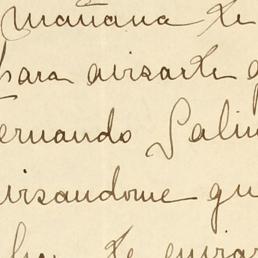 mañana te
para avisarte q
Fernando Salin
avisandome qu
te enviar